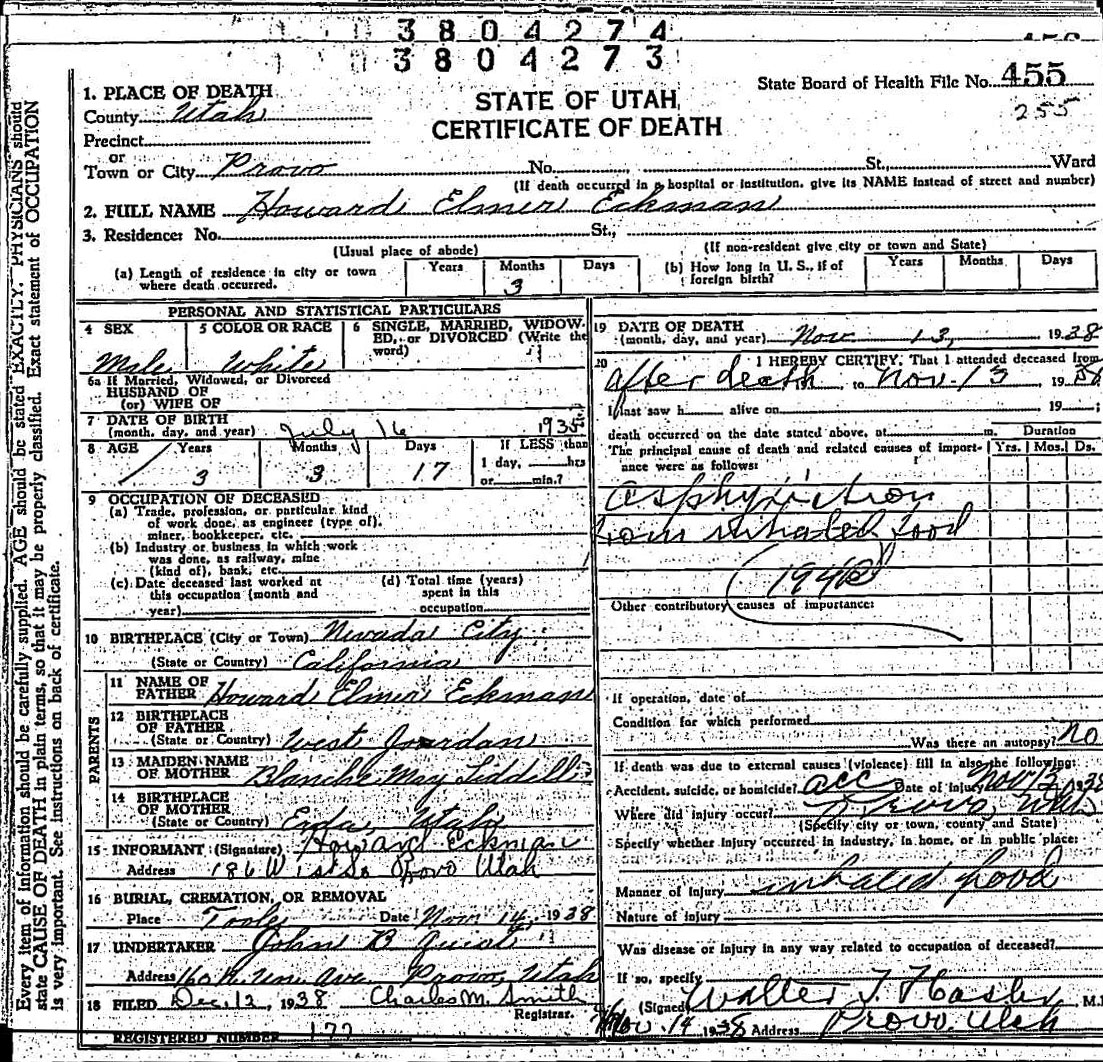 3804274
3804273
State Board of Health File No. 455
255
STATE OF UTAH
CERTIFICATE OF DEATH
1. PLACE OF DEATH
County Utah
Precinct
or
Town or City Provo No. St., Ward
(If death occurred in a hospital or institution, give its NAME instead of street and number)
2. FULL NAME Howard Elmer Eckman
3. Residence: No. St.,
(Usual place of abode) (If non-resident give city or town and State)
(a) Length of residence in city or town where death occurred. Years Months 3 Days
(b) How long in U. S., if of foreign birth? Years Months Days
PERSONAL AND STATISTICAL PARTICULARS
4 SEX Male
5 COLOR OR RACE White
6 SINGLE, MARRIED, WIDOWED, or DIVORCED (Write the word)
6a If Married, Widowed, or Divorced
HUSBAND OF
(or) WIFE OF
7 DATE OF BIRTH
(month, day, and year) July 16 1935
8 AGE Years 3 Months 3 Days 17 If LESS than
1 day, hrs
or min.?
9 OCCUPATION OF DECEASED
(a) Trade, profession, or particular kind
of work done, as engineer (type of),
miner, bookkeeper, etc.
(b) Industry or business in which work
was done, as railway, mine
(kind of), bank, etc.
(c) Date deceased last worked at
this occupation (month and
year)
(d) Total time (years)
spent in this
occupation
10 BIRTHPLACE (City or Town) Nevada City
(State or Country) California
PARENTS
11 NAME OF
FATHER Howard Elmer Eckman
12 BIRTHPLACE
OF FATHER
(State or Country) West Jourdan
13 MAIDEN NAME
OF MOTHER Blanche May Liddell
14 BIRTHPLACE
OF MOTHER
(State or Country) Erda, Utah
15 INFORMANT (Signature) Howard Eckman
Address 186 W 1st So Provo Utah
16 BURIAL, CREMATION, OR REMOVAL
Place Tooele Date Nov 14, 1938
17 UNDERTAKER John B
Address 160 N. Un. Ave. Provo, Utah
18 FILED Dec. 12, 1938 Charles M. Smith
Registrar.
REGISTERED NUMBER 177
19 DATE OF DEATH
(month, day, and year) Nov 13, 1938
20 I HEREBY CERTIFY, That I attended deceased from
after death to Nov. 13 19 38
I last saw h alive on 19 ;
death occurred on the date stated above, at m. Duration
The principal cause of death and related causes of importance were as follows: Yrs. Mos. Ds.
asphyxiction
from inhaled food
Other contributory causes of importance:
If operation, date of
Condition for which performed
Was there an autopsy? No
If death was due to external causes (violence) fill in also the following:
Accident, suicide, or homicide? acc Date of injury Nov 13, 1938
Where did injury occur? Provo, Utah
(Specify city or town, county and State)
Specify whether injury occurred in industry, in home, or in public place:
Manner of injury inhaled food
Nature of injury
Was disease or injury in any way related to occupation of deceased?
If so, specify
(Signed) Walter T. Hasler M.
Nov. 14 1938 Address Provo Utah
Every item of information should be carefully supplied. AGE should be stated EXACTLY. PHYSICIANS should
state CAUSE OF DEATH in plain terms, so that it may be properly classified. Exact statement of OCCUPATION
is very important. See instructions on back of certificate.